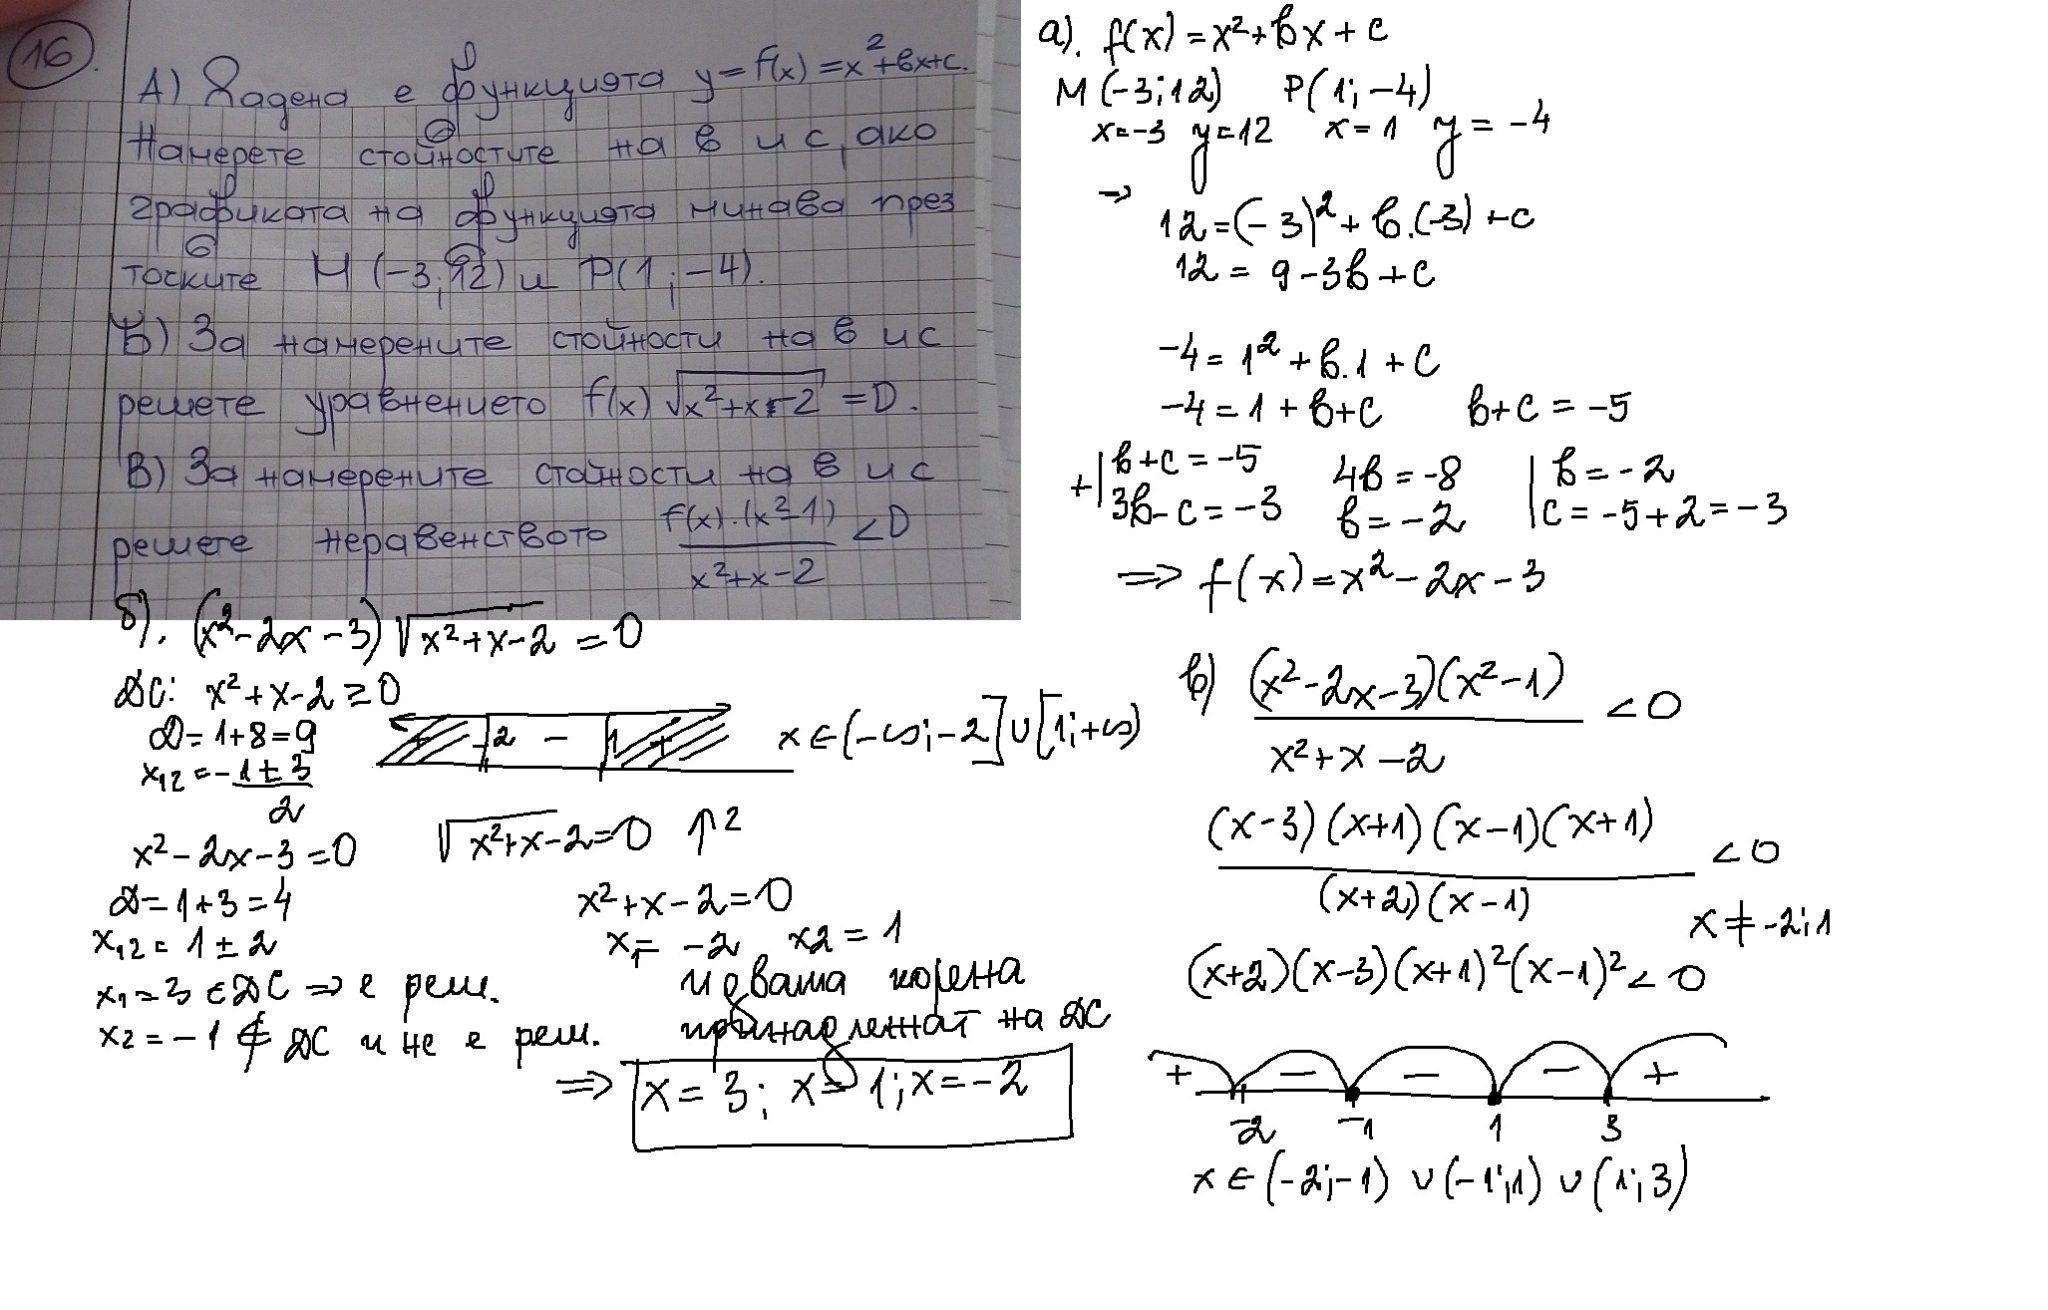 16.
А) Задена е функцията y = f(x) = x²+вx+c.
Намерете стойностите на в и с, ако
графиката на функцията минава през
точките М (-3;12) и Р(1;-4).
Б) За намерените стойности на в и с
решете уравнението f(x) √(x²+x-2) = 0.
В) За намерените стойности на в и с
решете неравенството f(x).(x²-1)/(x²+x-2) < 0
а). f(x) = x²+вx+c
М (-3;12) P(1;-4)
x=-3 y=12 x=1 y=-4
⇒
12=(-3)²+в.(-3)+c
12 = 9-3в+c
-4=1²+в.1+c
-4=1+в+c в+c=-5
+| в+c=-5 4в=-8 | в=-2
3в-c=-3 в=-2 | c=-5+2=-3
⇒ f(x)=x²-2x-3
б). (x²-2x-3)√(x²+x-2) = 0
ДС: x²+x-2≥0
D=1+8=9
+ -2 - 1 + x∈(-∞;-2]∪[1;+∞)
x₁₂=(-1±3)/2
x²-2x-3=0 √(x²+x-2)=0 ↑²
D=1+3=4 x²+x-2=0
x₁₂=1±2 x₁=-2 x2=1
x₁=3 ∈ДС ⇒ е реш. и двата корена
x₂=-1 ∉ ДС и не е реш. принадлежат на ДС
⇒ x=3; x=1; x=-2
в) (x²-2x-3)(x²-1)/(x²+x-2) <0
(x-3)(x+1)(x-1)(x+1)/((x+2)(x-1)) <0
x≠-2;1
(x+2)(x-3)(x+1)²(x-1)²<0
+ - - - +
-2 -1 1 3
x∈(-2;-1) ∪(-1;1) ∪(1;3)